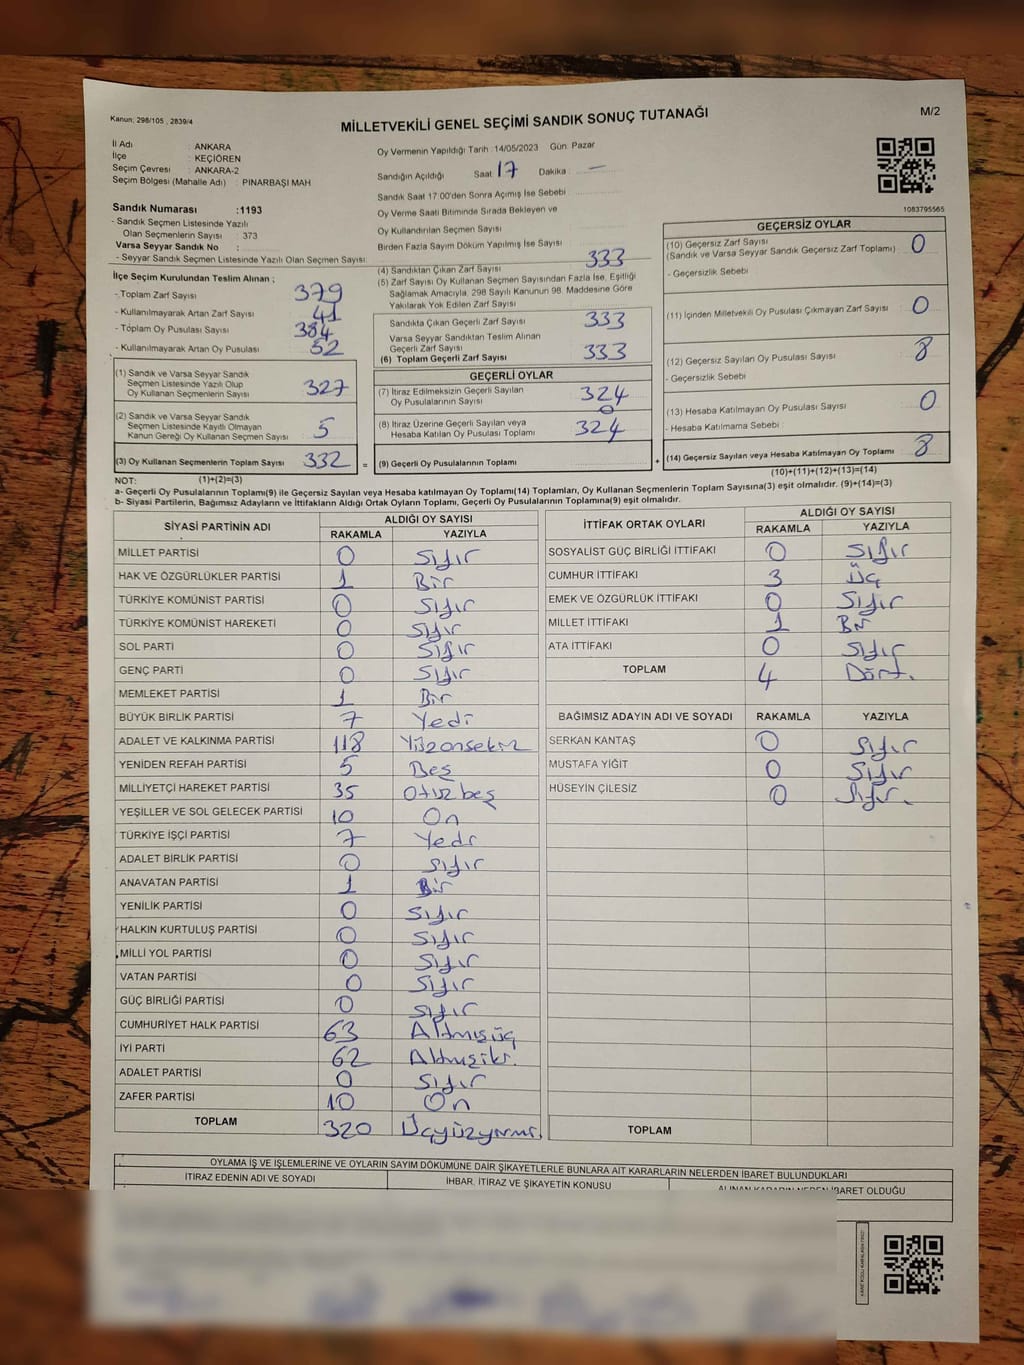 Kanun; 298/105 , 2839/4
MİLLETVEKİLİ GENEL SEÇİMİ SANDIK SONUÇ TUTANAĞI
M/2
İl Adı : ANKARA
İlçe : KEÇİÖREN
Seçim Çevresi : ANKARA-2
Seçim Bölgesi (Mahalle Adı) : PINARBAŞI MAH
Sandık Numarası :1193
- Sandık Seçmen Listesinde Yazılı
Olan Seçmenlerin Sayısı : 373
Varsa Seyyar Sandık No :
- Seyyar Sandık Seçmen Listesinde Yazılı Olan Seçmen Sayısı:
İlçe Seçim Kurulundan Teslim Alınan ;
- Toplam Zarf Sayısı 379
- Kullanılmayarak Artan Zarf Sayısı 41
- Toplam Oy Pusulası Sayısı 384
- Kullanılmayarak Artan Oy Pusulası 52
(1) Sandık ve Varsa Seyyar Sandık
Seçmen Listesinde Yazılı Olup
Oy Kullanan Seçmenlerin Sayısı 327
(2) Sandık ve Varsa Seyyar Sandık
Seçmen Listesinde Kayıtlı Olmayan
Kanun Gereği Oy Kullanan Seçmen Sayısı 5
(3) Oy Kullanan Seçmenlerin Toplam Sayısı 332 =
Oy Vermenin Yapıldığı Tarih :14/05/2023 Gün: Pazar
Sandığın Açıldığı Saat 17 Dakika : —
Sandık Saat 17:00'den Sonra Açılmış İse Sebebi
Oy Verme Saati Bitiminde Sırada Bekleyen ve
Oy Kullandırılan Seçmen Sayısı
Birden Fazla Sayım Döküm Yapılmış İse Sayısı
(4) Sandıktan Çıkan Zarf Sayısı 333
(5) Zarf Sayısı Oy Kullanan Seçmen Sayısından Fazla İse, Eşitliği
Sağlamak Amacıyla, 298 Sayılı Kanunun 98. Maddesine Göre
Yakılarak Yok Edilen Zarf Sayısı
Sandıkta Çıkan Geçerli Zarf Sayısı 333
Varsa Seyyar Sandıktan Teslim Alınan
Geçerli Zarf Sayısı
(6) Toplam Geçerli Zarf Sayısı 333
GEÇERLİ OYLAR
(7) İtiraz Edilmeksizin Geçerli Sayılan
Oy Pusulalarının Sayısı 324
(8) İtiraz Üzerine Geçerli Sayılan veya
Hesaba Katılan Oy Pusulası Toplamı 0
324
(9) Geçerli Oy Pusulalarının Toplamı +
1083795565
GEÇERSİZ OYLAR
(10) Geçersiz Zarf Sayısı
(Sandık ve Varsa Seyyar Sandık Geçersiz Zarf Toplamı) 0
- Geçersizlik Sebebi
(11) İçinden Milletvekili Oy Pusulası Çıkmayan Zarf Sayısı 0
(12) Geçersiz Sayılan Oy Pusulası Sayısı 8
- Geçersizlik Sebebi
(13) Hesaba Katılmayan Oy Pusulası Sayısı 0
- Hesaba Katılmama Sebebi
(14) Geçersiz Sayılan veya Hesaba Katılmayan Oy Toplamı 8
NOT: (1)+(2)=(3)
(10)+(11)+(12)+(13)=(14)
a- Geçerli Oy Pusulalarının Toplamı(9) ile Geçersiz Sayılan veya Hesaba katılmayan Oy Toplamı(14) Toplamları, Oy Kullanan Seçmenlerin Toplam Sayısına(3) eşit olmalıdır. (9)+(14)=(3)
b- Siyasi Partilerin, Bağımsız Adayların ve İttifakların Aldığı Ortak Oyların Toplamı, Geçerli Oy Pusulalarının Toplamına(9) eşit olmalıdır.
SİYASİ PARTİNİN ADI ALDIĞI OY SAYISI
RAKAMLA YAZIYLA
MİLLET PARTİSİ 0 Sıfır
HAK VE ÖZGÜRLÜKLER PARTİSİ 1 Bir
TÜRKİYE KOMÜNİST PARTİSİ 0 Sıfır
TÜRKİYE KOMÜNİST HAREKETİ 0 Sıfır
SOL PARTİ 0 Sıfır
GENÇ PARTİ 0 Sıfır
MEMLEKET PARTİSİ 1 Bir
BÜYÜK BİRLİK PARTİSİ 7 Yedi
ADALET VE KALKINMA PARTİSİ 118 Yüzonsekiz
YENİDEN REFAH PARTİSİ 5 Beş
MİLLİYETÇİ HAREKET PARTİSİ 35 Otuzbeş
YEŞİLLER VE SOL GELECEK PARTİSİ 10 On
TÜRKİYE İŞÇİ PARTİSİ 7 Yedi
ADALET BİRLİK PARTİSİ 0 Sıfır
ANAVATAN PARTİSİ 1 Bir
YENİLİK PARTİSİ 0 Sıfır
HALKIN KURTULUŞ PARTİSİ 0 Sıfır
MİLLİ YOL PARTİSİ 0 Sıfır
VATAN PARTİSİ 0 Sıfır
GÜÇ BİRLİĞİ PARTİSİ 0 Sıfır
CUMHURİYET HALK PARTİSİ 63 Altmışüç
İYİ PARTİ 62 Altmışiki.
ADALET PARTİSİ 0 Sıfır
ZAFER PARTİSİ 10 On
TOPLAM 320 Üçyüzyirmi.
İTTİFAK ORTAK OYLARI ALDIĞI OY SAYISI
RAKAMLA YAZIYLA
SOSYALİST GÜÇ BİRLİĞİ İTTİFAKI 0 Sıfır
CUMHUR İTTİFAKI 3 Üç
EMEK VE ÖZGÜRLÜK İTTİFAKI 0 Sıfır
MİLLET İTTİFAKI 1 Bir
ATA İTTİFAKI 0 Sıfır
TOPLAM 4 Dört.
BAĞIMSIZ ADAYIN ADI VE SOYADI RAKAMLA YAZIYLA
SERKAN KANTAŞ 0 Sıfır
MUSTAFA YİĞİT 0 Sıfır
HÜSEYİN ÇİLESİZ 0 Sıfır.
TOPLAM
OYLAMA İŞ VE İŞLEMLERİNE VE OYLARIN SAYIM DÖKÜMÜNE DAİR ŞİKAYETLERLE BUNLARA AİT KARARLARIN NELERDEN İBARET BULUNDUKLARI
İTİRAZ EDENİN ADI VE SOYADI İHBAR, İTİRAZ VE ŞİKAYETİN KONUSU ALINAN KARARIN NEDEN İBARET OLDUĞU